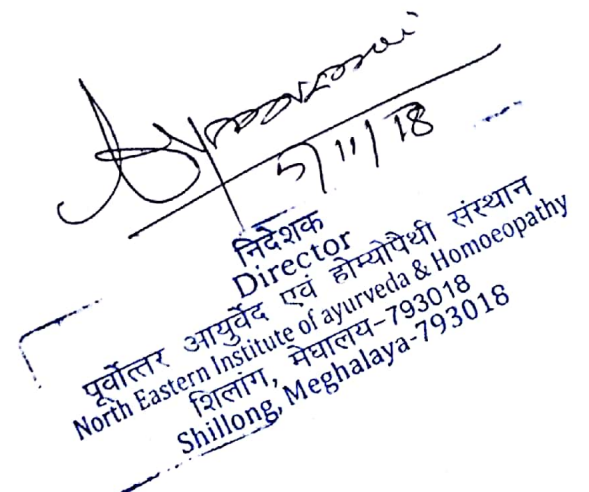 5/11/18
निदेशक
Director
पूर्वोत्तर आयुर्वेद एवं होम्योपैथी संस्थान
North Eastern Institute of ayurveda & Homoeopathy
शिलांग, मेघालय-793018
Shillong, Meghalaya-793018